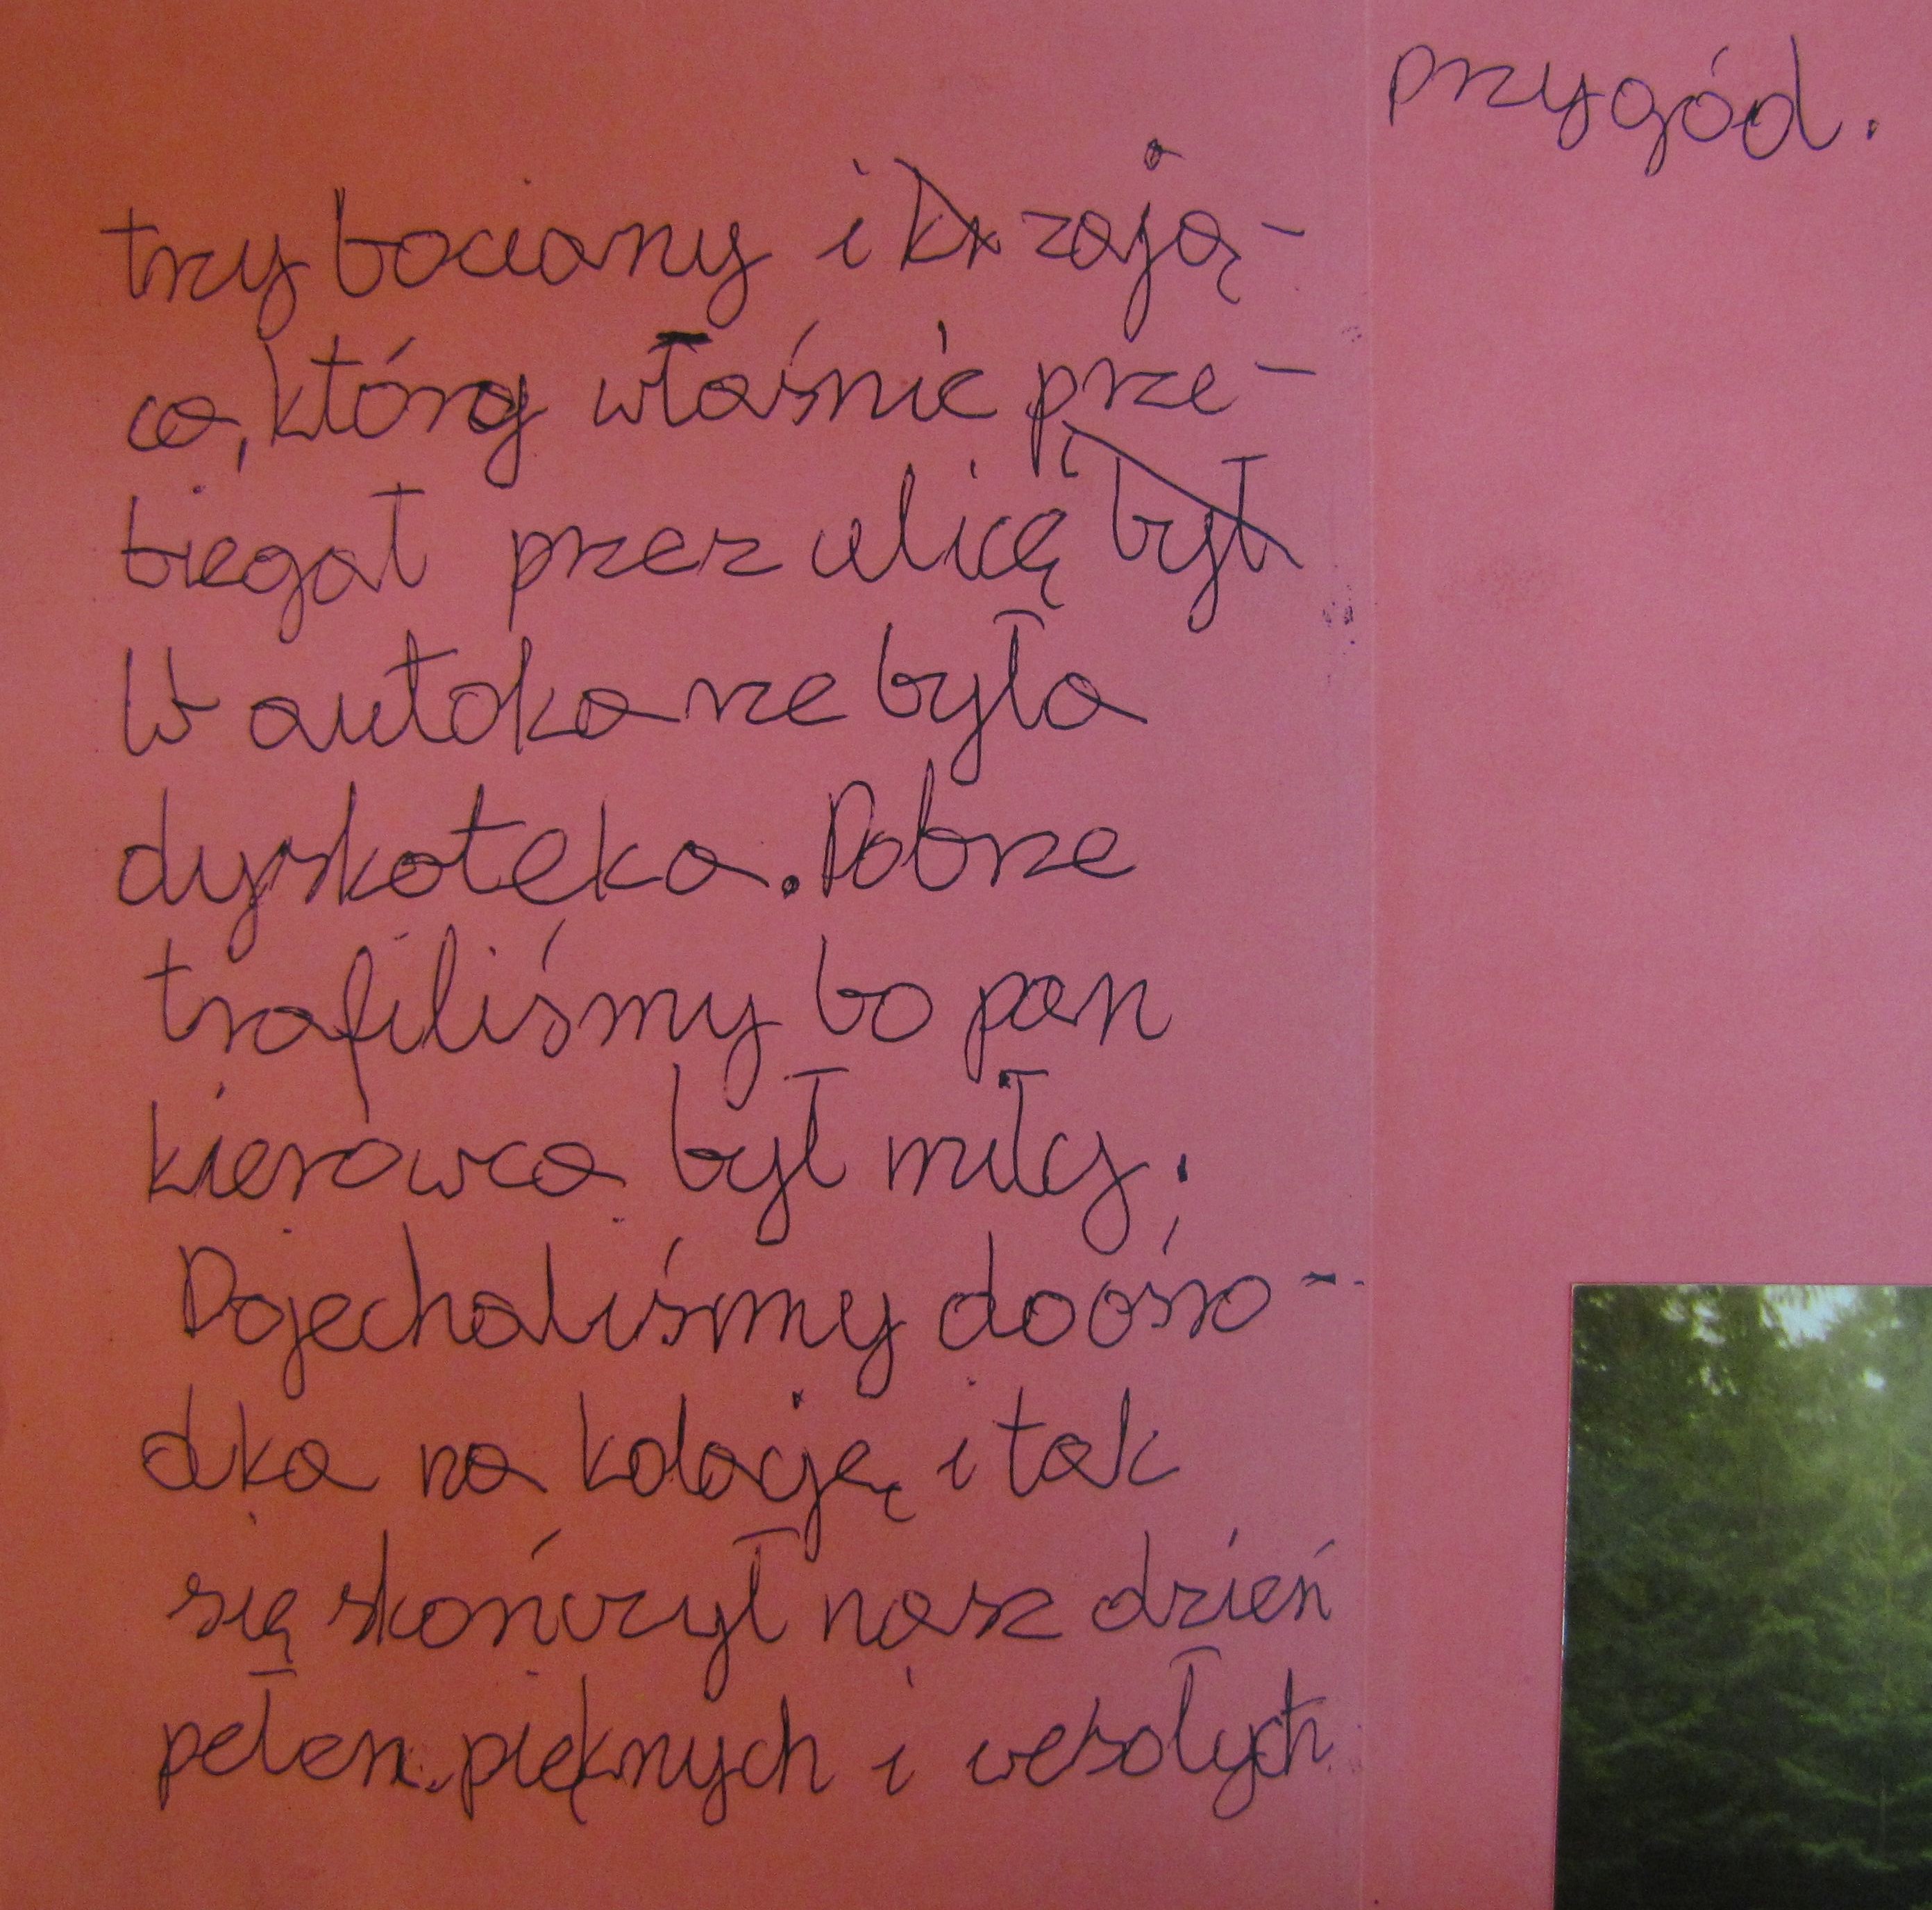 trzy bociany i zają-
ca, który właśnie prze-
biegał przez ulicę
W autokarze była
dyskoteka. Dobrze
trafiliśmy bo pan
kierowca był miły.
Dojechaliśmy do ośro-
dka na kolację i tak
się skończył nasz dzień
pełen pięknych i wesołych
przygód.